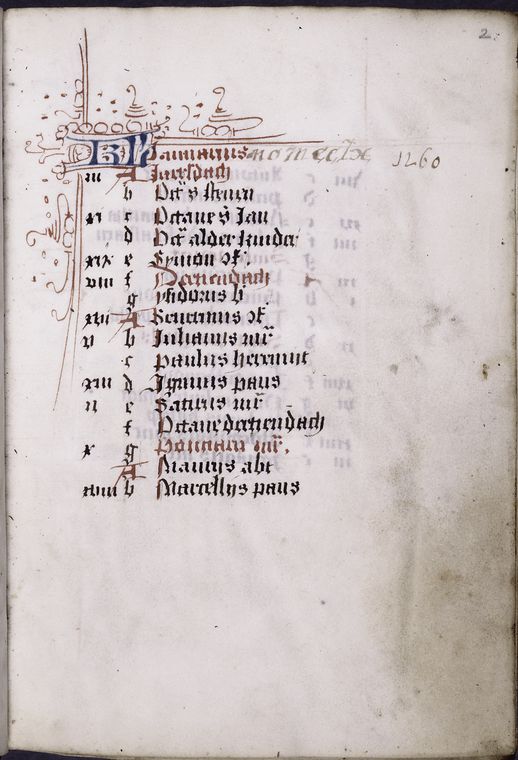 2
KL Januarius no MccLx 1260
iii A Jaersdach
b Oct' s steuen
xi c Octaue s Jan
d Oct alder kinder
xix e Symon cf.
viii f Dertiendach
g ysidorus b
xvi A Seuerinus cf
v b Julianus mr
c paulus heremijt
xiii d Iginius paus
ii e Saturus mr
f Octaue dertiendach
x g Ponciaen mr.
A Maurus abt
xviii b Marcellus paus